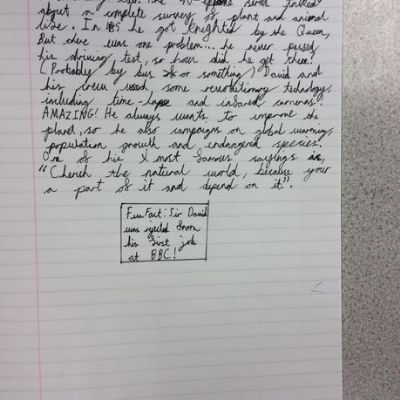 about a complete survey of plant and animal
life. In 85 he got knighted by the Queen,
But there was one problem... he never passed
his driving test, so how did he get there?
(Probably by bus or something) David and
his crew used some revolutionary technology,
including time-lapse and infared cameras.
AMAZING! He always wants to improve the
planet, so he also campaigns on global warming,
population growth and endangered species.
One of his most famous sayings is,
"Cherish the natural world, because your
a part of it and depend on it".
Fun Fact: Sir David
was rejected from
his first job
at BBC!